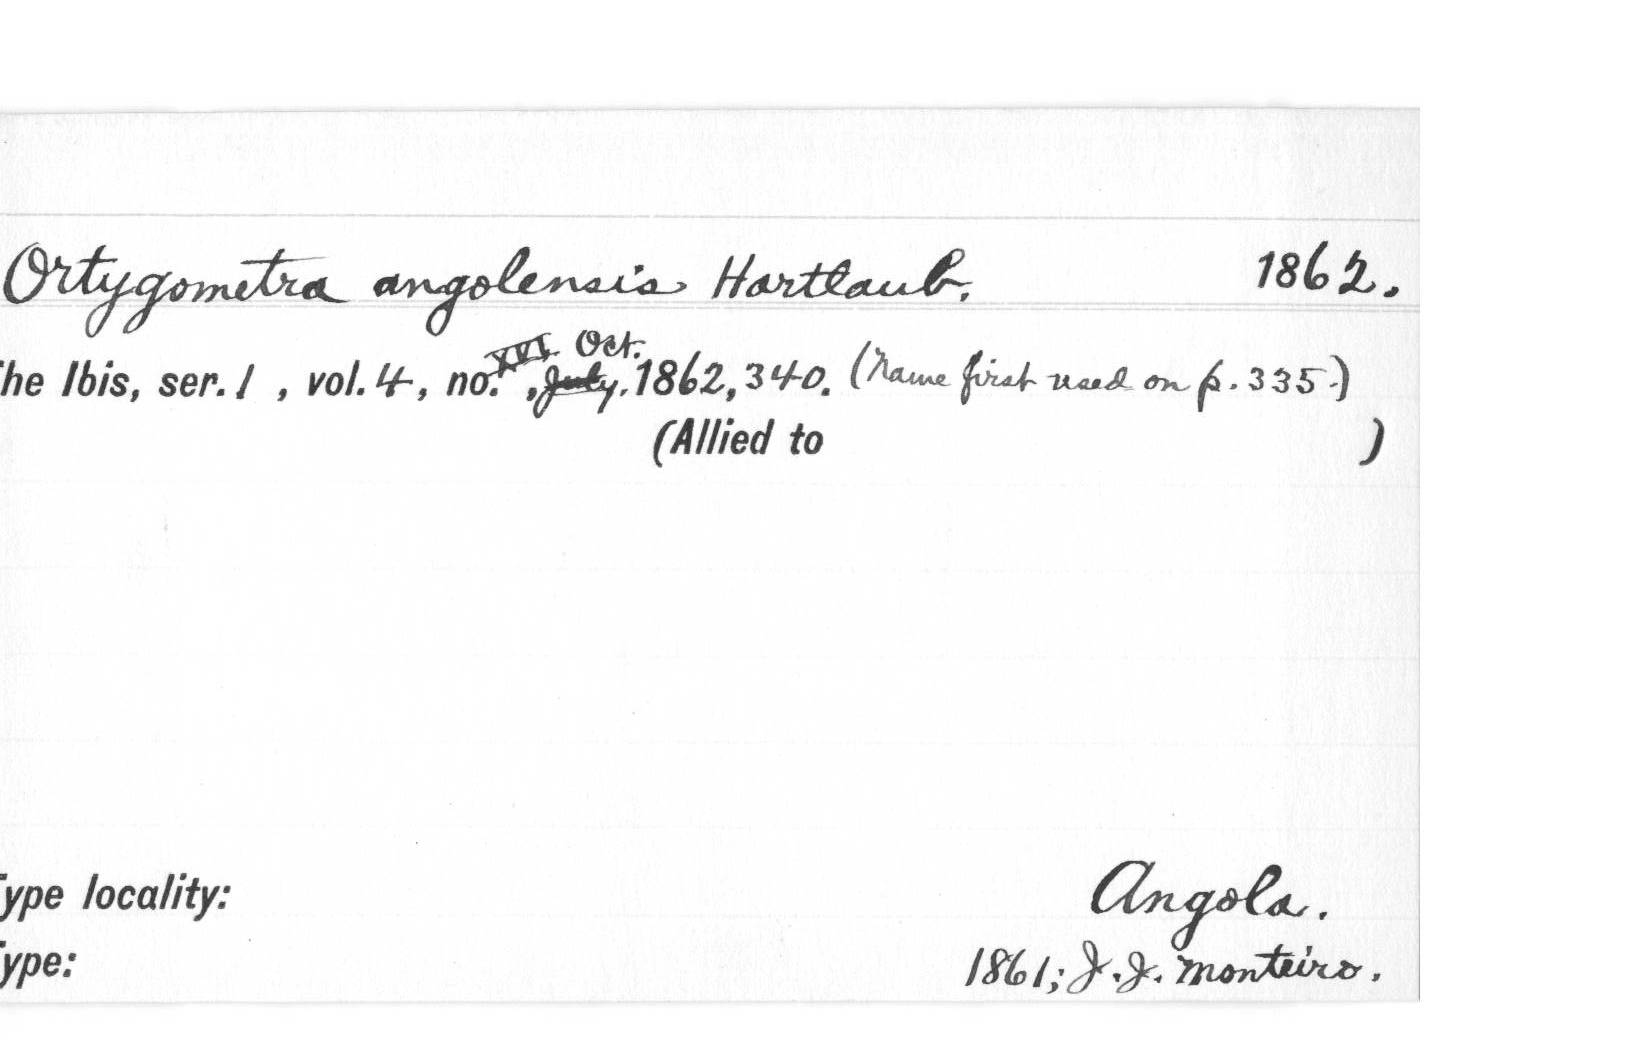 Ortygometra angolensis Hartlaub. 1862.
XVI Oct.
he Ibis, ser. 1 , vol. 4, no. , July. 1862, 340. (Name first used on p. 335.)
(Allied to )
ype locality: Angola.
ype: 1861; J. J. Monteiro.